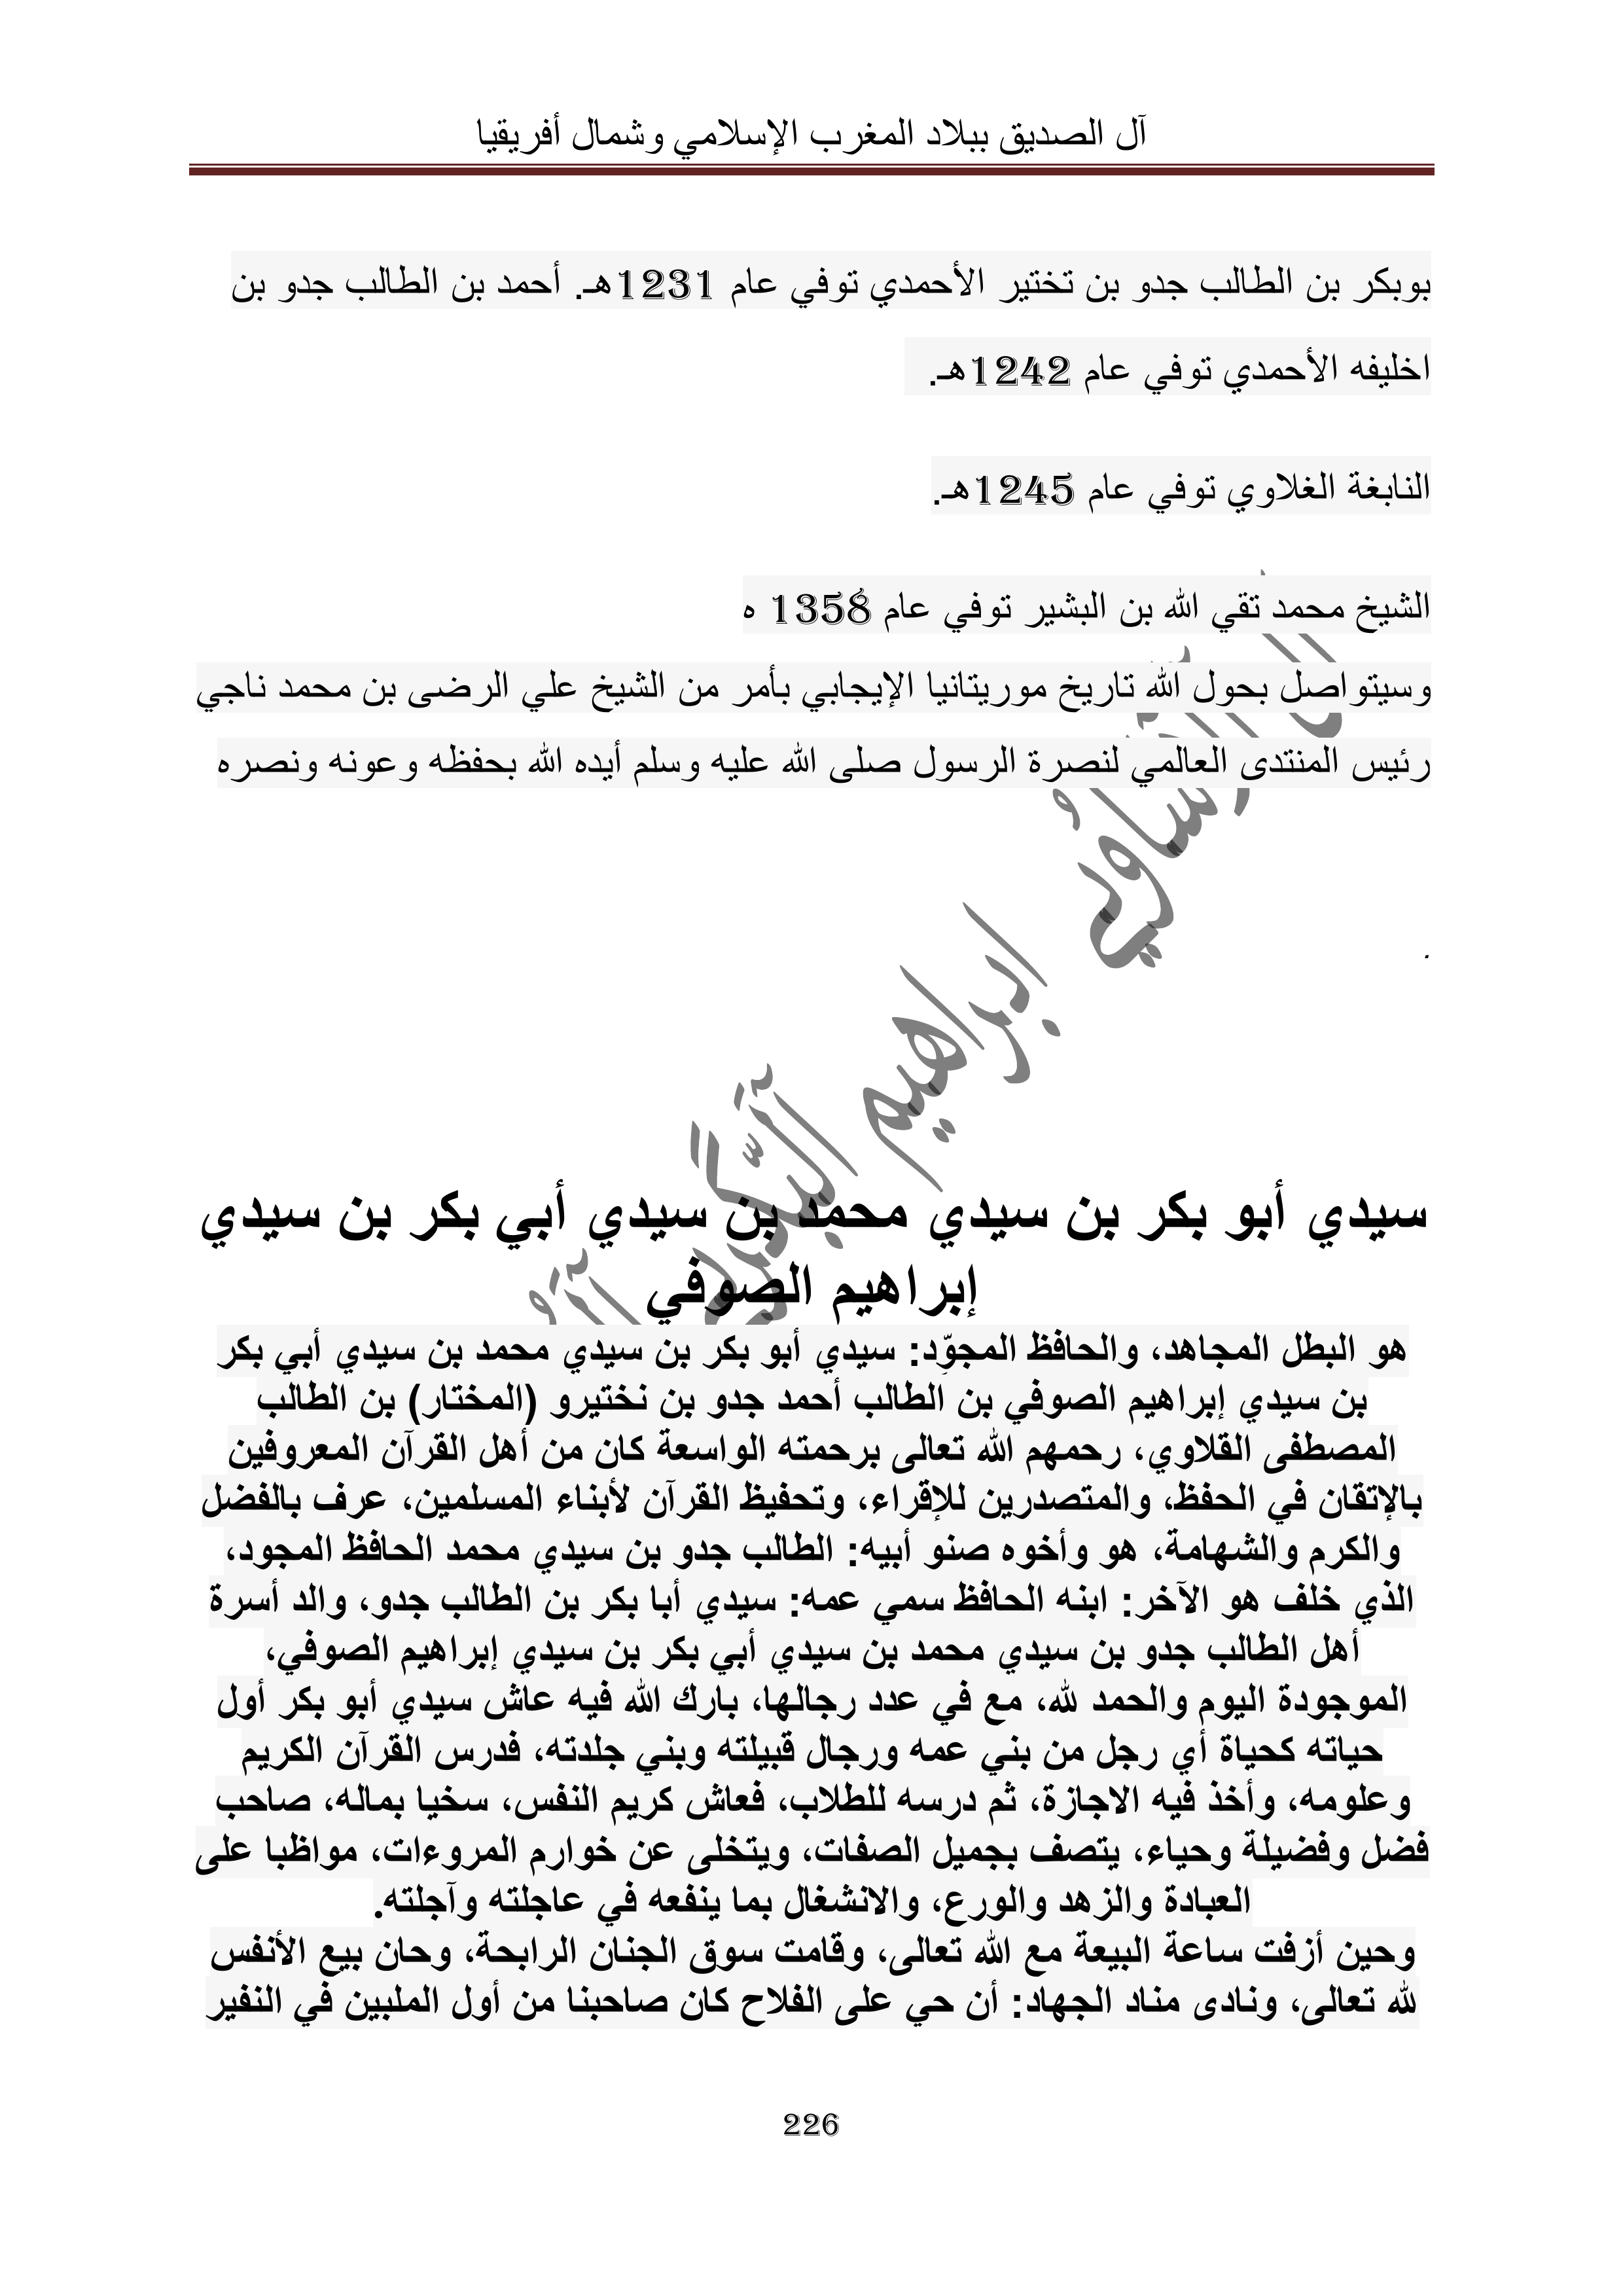 آل الصديق ببلاد المغرب الإسلامي وشمال أفريقيا
بوبكر بن الطالب جدو بن تختير الأحمدي توفي عام 1231هـ. أحمد بن الطالب جدو بن
اخليفه الأحمدي توفي عام 1242هـ.
النابغة الغلاوي توفي عام 1245هـ.
الشيخ محمد تقي الله بن البشير توفي عام 1358 ه
وسيتواصل بحول الله تاريخ موريتانيا الإيجابي بأمر من الشيخ علي الرضى بن محمد ناجي
رئيس المنتدى العالمي لنصرة الرسول صلى الله عليه وسلم أيده الله بحفظه وعونه ونصره
.
ابراهيم
سيدي أبو بكر بن سيدي محمد بن سيدي أبي بكر بن سيدي
إبراهيم الصوفي
هو البطل المجاهد، والحافظ المجوّد: سيدي أبو بكر بن سيدي محمد بن سيدي أبي بكر
بن سيدي إبراهيم الصوفي بن الطالب أحمد جدو بن نختيرو (المختار) بن الطالب
المصطفى القلاوي، رحمهم الله تعالى برحمته الواسعة كان من أهل القرآن المعروفين
بالإتقان في الحفظ، والمتصدرين للإقراء، وتحفيظ القرآن لأبناء المسلمين، عرف بالفضل
والكرم والشهامة، هو وأخوه صنو أبيه: الطالب جدو بن سيدي محمد الحافظ المجود،
الذي خلف هو الآخر: ابنه الحافظ سمي عمه: سيدي أبا بكر بن الطالب جدو، والد أسرة
أهل الطالب جدو بن سيدي محمد بن سيدي أبي بكر بن سيدي إبراهيم الصوفي،
الموجودة اليوم والحمد لله، مع في عدد رجالها، بارك الله فيه عاش سيدي أبو بكر أول
حياته كحياة أي رجل من بني عمه ورجال قبيلته وبني جلدته، فدرس القرآن الكريم
وعلومه، وأخذ فيه الاجازة، ثم درسه للطلاب، فعاش كريم النفس، سخيا بماله، صاحب
فضل وفضيلة وحياء، يتصف بجميل الصفات، ويتخلى عن خوارم المروءات، مواظبا على
العبادة والزهد والورع، والانشغال بما ينفعه في عاجلته وآجلته.
وحين أزفت ساعة البيعة مع الله تعالى، وقامت سوق الجنان الرابحة، وحان بيع الأنفس
لله تعالى، ونادى مناد الجهاد: أن حي على الفلاح كان صاحبنا من أول الملبين في النفير
226